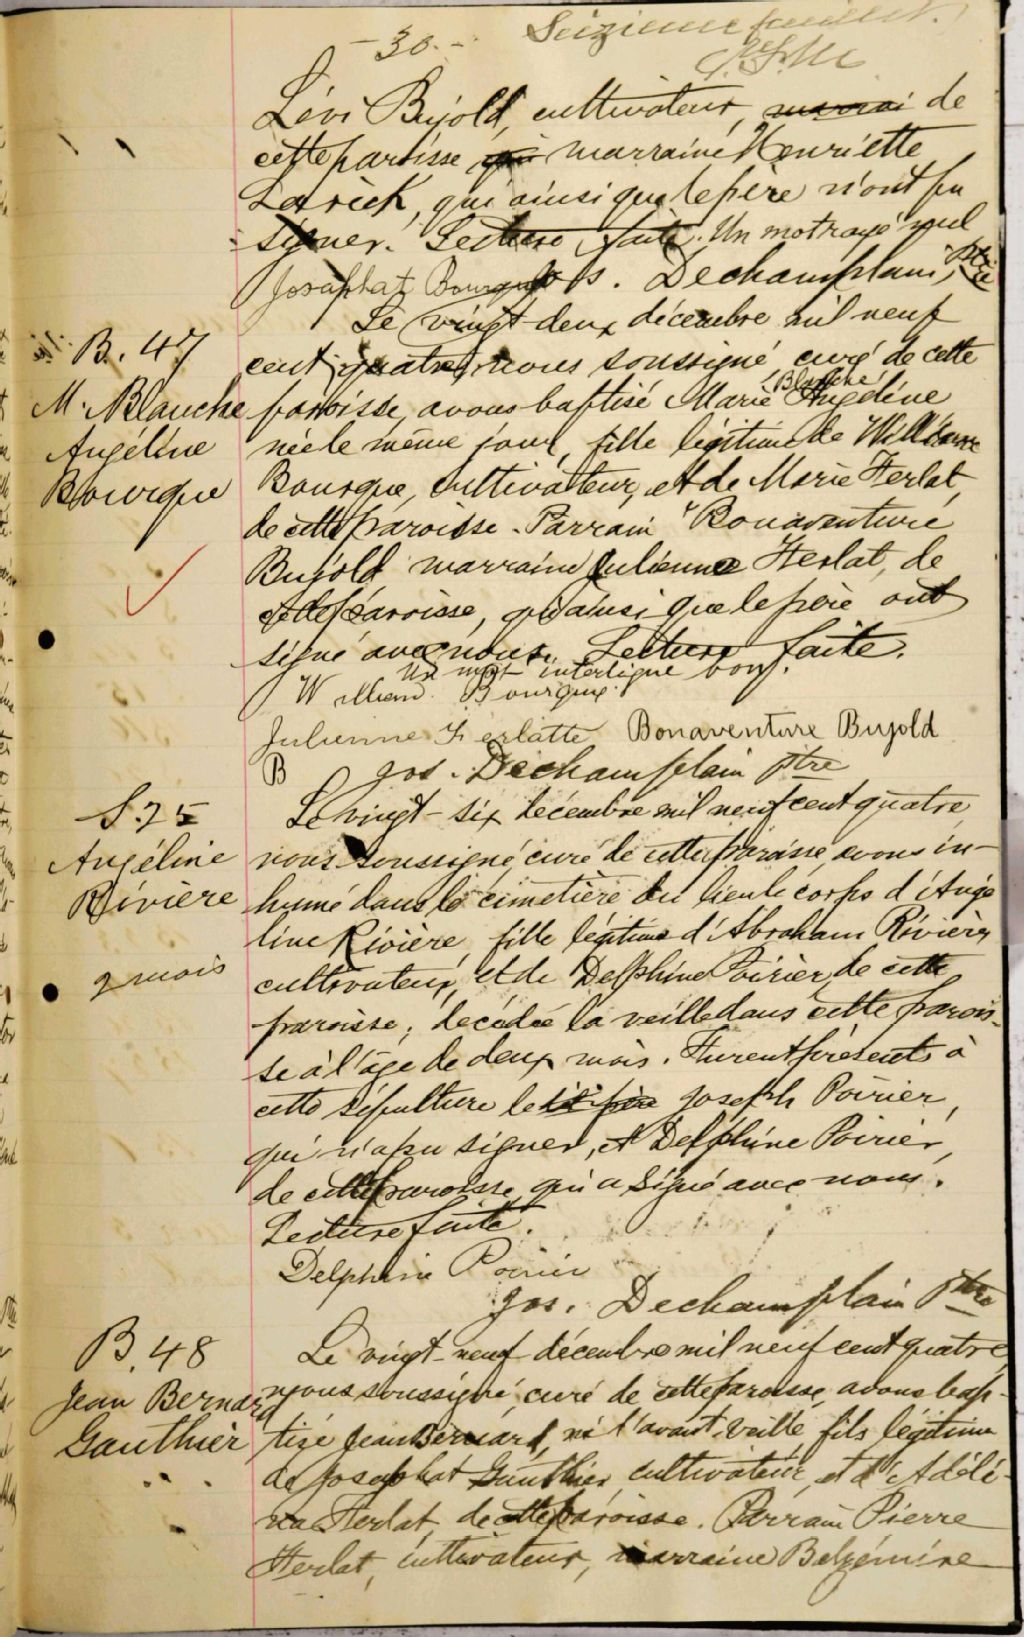 - 30. - Seizième feuillet.
Lévi Bujold, cultivateur, de
cette paroisse marraine Henriette
Larick, qui ainsi que le père n'ont pu
signer. Lecture faite. Un mot rayé nul
Josaphat Bourque Jos. Dechamplain, Ptre
B. 47
M. Blanche
Angéline
Bourque
Le vingt-deux décembre mil neuf
cent quatre, nous soussigné, curé de cette
paroisse, avons baptisé Marie Blanche Angéline
née le même jour, fille légitime de William
Bourque, cultivateur, et de Marie Ferlat,
de cette paroisse. Parrain Bonaventure
Bujold marraine Julienne Ferlat, de
cette paroisse, qui ainsi que le père ont
signé avec nous. Lecture faite.
Un mot interligne bon.
William Bourque
Julienne Ferlatte Bonaventure Bujold
B Jos. Dechamplain ptre
S. 25
Angéline
Rivière
2 mois
Le vingt-six décembre mil neuf cent quatre,
nous soussigné, curé de cette paroisse, avons in-
humé dans le cimetière du lieu le corps d'Angé
line Rivière, fille légitime d'Abraham Rivière,
cultivateur, et de Delphine Poirier, de cette
paroisse, décédée la veille dans cette parois-
se à l'âge de deux mois. Furent présents à
cette sépulture le père Joseph Poirier,
qui n'a pu signer, et Delphine Poirier,
de cette paroisse, qui a signé avec nous.
Lecture faite.
Delphine Poirier
Jos. Dechamplain Ptre
B. 48
Jean Bernard
Gauthier
Le vingt-neuf décembre mil neuf cent quatre
nous soussigné, curé de cette paroisse, avons bap-
tizé Jean Bernard, né l'avant-veille fils légitime
de Josaphat Gauthier, cultivateur, et d'Adéli-
na Ferlat, de cette paroisse. Parrain Pierre
Ferlat, cultivateur, marraine Belzémire